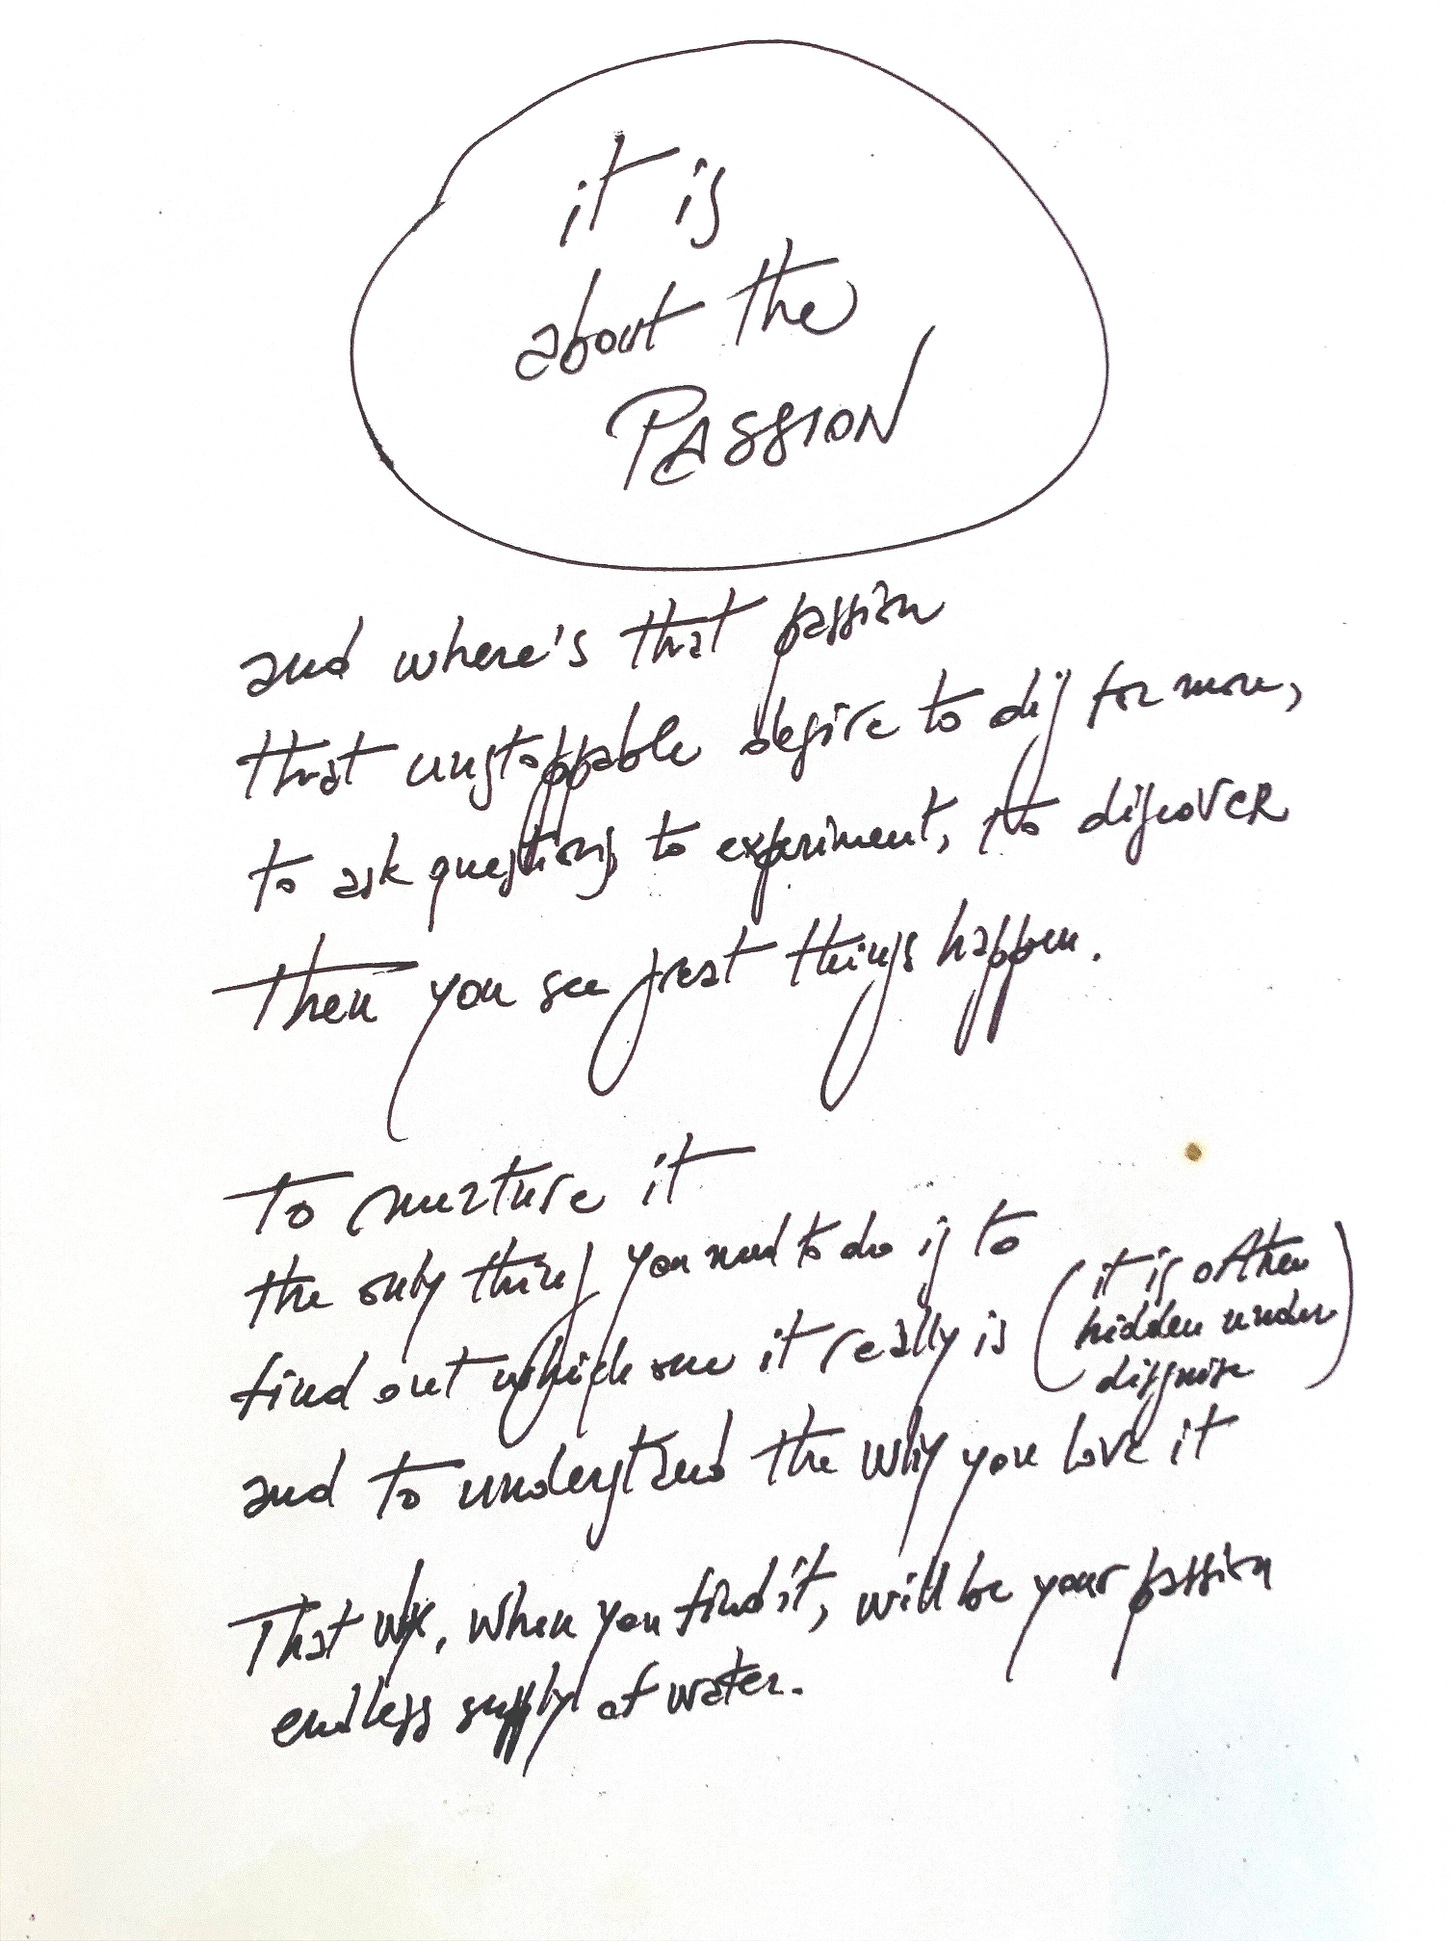 it is
about the
PASSION
and where's that passion
that unstoppable desire to dig for more,
to ask questions, to experiment, to discover
then you see great things happen.
To nurture it
the only thing you need to do is to
find out which one it really is
(it is often
hidden under
disguise)
and to understand the why you love it
That why, when you find it, will be your passion
endless supply of water.